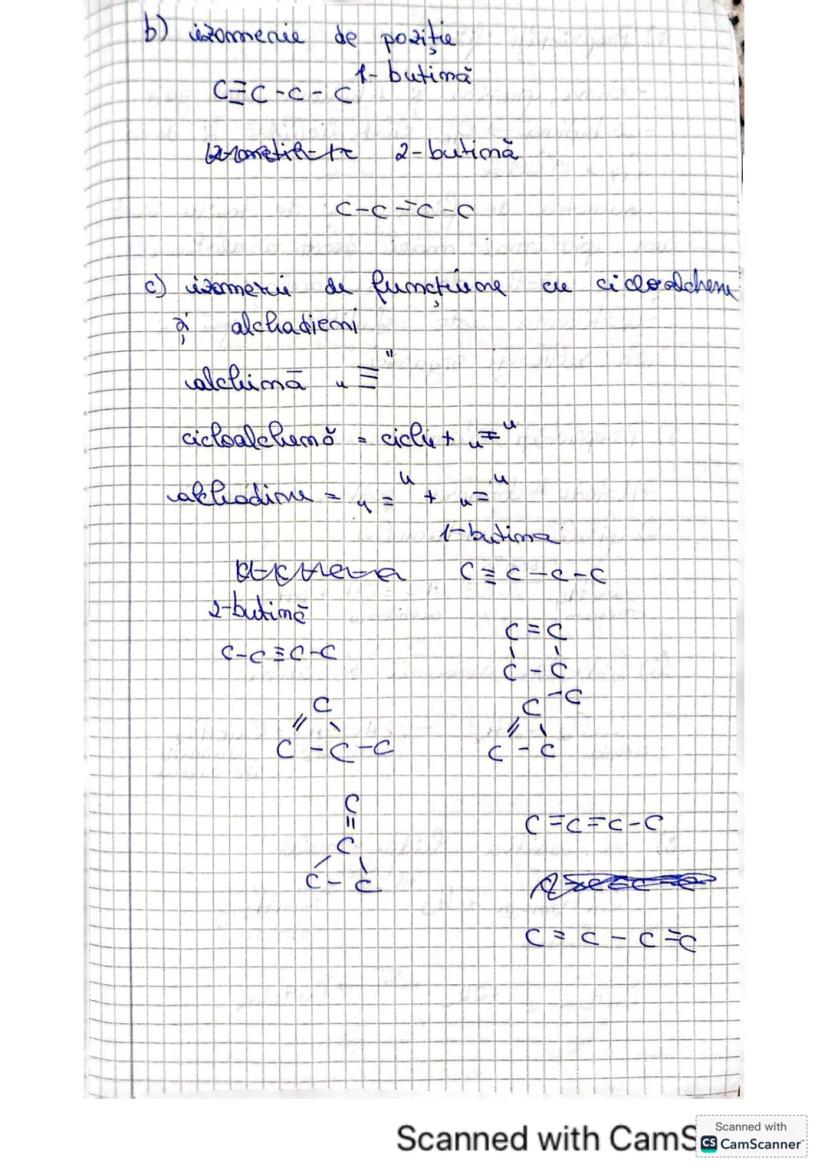 b) izomerie de poziție
1-butină
C≡C-C-C
2-butină
C-C≡C-C
c) izomerii de funcțiune cu cicloalchene
și alchadieni
alchină "≡"
cicloalchenă = ciclu + "="
alchadiene = "=" + "="
1-butina
C≡C-C-C
2-butină
C-C≡C-C
C=C
C-C
C-C
C
C-C-C
C-C
C
C
C=C=C-C
C-C
C=C-C=C
Scanned with CamS
Scanned with
CS CamScanner